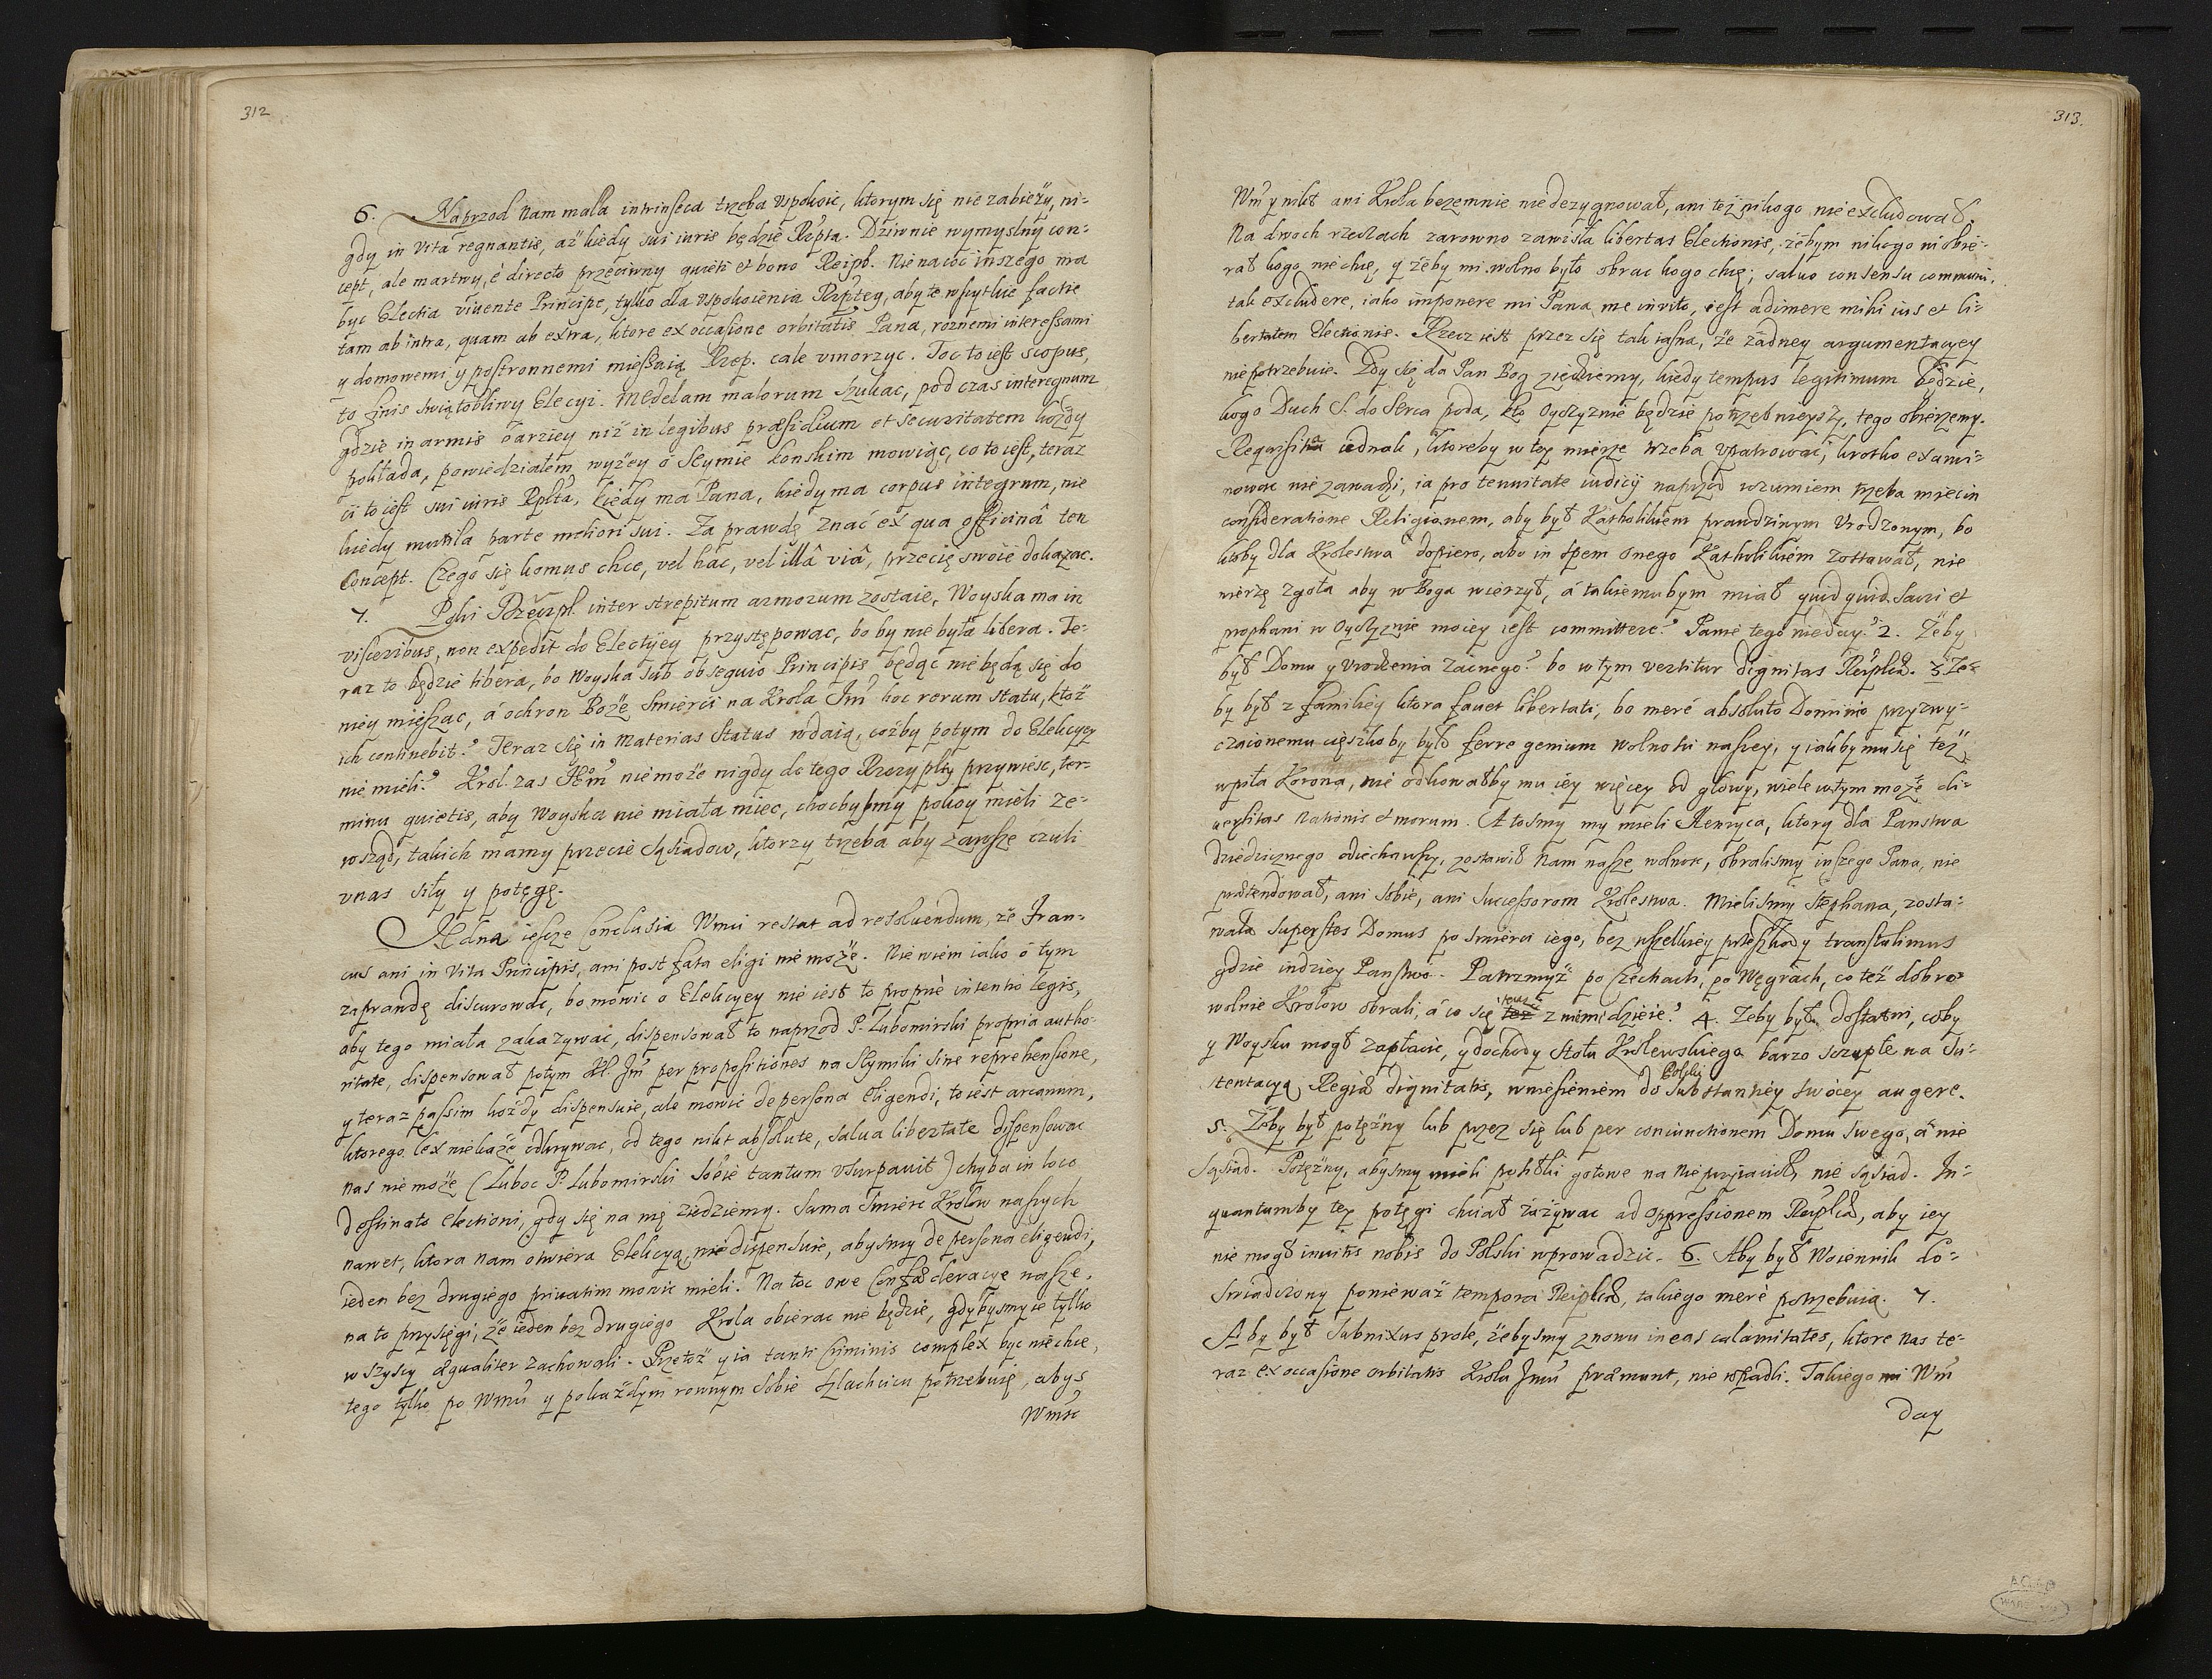 312
6. Naprzod nam mala intrinseca trzeba uspokoic, ktorym się nie zabieży, ni-
gdy in vita regnantis, aż kiedy sui iuris będzie Rzpta. Dziwnie wymyslny con-
cept, ale martwy, è directo przeciwny quieti et bono Reipb. Nie na coć inszego ma
byc Electia vivente Principe, tylko dla uspokoienia Rzptey, aby te wszytkie factie
tam ab intra, quam ab extra, ktore ex occasione orbitatis Pana, roznemi interessami
y domowemi y postronnemi mieszaią Rzep. cale umorzyc. Toc to iest scopus,
to finis swiątobliwy Elecyi. Medelam malorum szukac, pod czas interegnum
gdzie in armis barziey niż in legibus præsidium et securitatem kożdy
pokłada, powiedziałem wyżey ó Seymie konskim mowiąc, co to iest, teraz
ci to iest sui iuris Rplta, kiedy má Pana, kiedy ma corpus integrum, nie
kiedy mutila parte meliori sui. Za prawdę znać ex qua officinâ ten
Concept. Czego się komus chce, vel hac, vel illâ viâ, przecię swoie dokazac.
7. Poki Rzeczpl. inter strepitum armorum zostaie, Woyska ma in
visceribus, non expedit do Electyey przystępowac, bo by nie była libera. Te-
raz to będzie libera, bo Woyska sub obsequio Principis będąc nie będą się do
niey mieszac, á ochron Boże smierci na Krola Jm̃ hoc rerum statu, ktoż
ich continebit? Teraz się in materias status wdaią, cożby potym do Elekcyey
nie mieli? Krol zas Jem̃ nie może nigdy do tego Rzeczyplty przywiesc, ter-
minu quietis, aby Woyska nie miała miec, chocbysmy pokoy mieli ze-
wsząd, takich mamy przecie Sąsiadow, ktorzy trzeba aby zawsze czuli
u nas siły y potęgę.
Jedna iescze Conclusia Wmci restat ad resoluendum, że Fran-
cus ani in vita Principis, ani post fata eligi nie może. Nie wiem iako ó tym
zaprawdę discurowac, bo mowic o Elekcyey nie iest to propriè intentio legis,
aby tego miała zakazywac, dispensował to naprzod P. Lubomirski propria autho-
ritate, dispensował potym Kl. Jm̃ per propositiones na Seymiki sine reprehensione,
y teraz passim kożdy dispensuie, ale mowic de persona eligendi, to iest arcanum,
ktorego lex nie każe odkrywac, od tego nikt absolute, salva libertate dispensowac
nas nie może (Luboc P. Lubomirski sobie tantum usurpavit) chyba in loco
destinato electioni, gdy się na nię ziedziemy. Sama smierc Krolow naszych
nawet, ktora nam otwiera Elekcyą, nie dispensuie, abysmy de persona eligendi,
ieden bez drugiego privatim mowic mieli. Na toc owe Confœderacye nasze,
na to przysięgi, że ieden bez drugiego Krola obierac nie będzie, gdybysmy ie tylko
wszyscy æqualiter zachowali. Przetoż y ia tanti criminis complex byc nie chcę,
tego tylko po Wmci y po każdym rownym sobie szlachcicu potrzebuię, abys
Wmśc
313.
Wm̃ y nikt ani Krola bezemnie nie dezygnował, ani też nikogo nie excludował.
Na dwoch rzeczach zarowno zawisła libertas Electionis, żebym nikogo ni obie-
rał kogo nie chcę, y żeby mi wolno było obrac kogo chcę; salvo consensu communi,
tak excludere, iako imponere mi Pana me invito, iest adimere mihi ius et li-
bertatem Electionis. Rzecz iest przez się tak iasna, że żadney argumentacyey
nie potrzebuie. Gdy się da Pan Bog zieżdziemy, kiedy tempus legitimum będzie,
kogo Duch S. do serca poda, kto Oyczyznie będzie potrzebnieyszy, tego obierzemy.
Requisita iednak, ktoreby w tey mierze trzeba upatrowac, krotko exami-
nowac nie zawadzi, ia pro tenuitate iudicij naprzod rozumiem trzeba miec in
consideratione Religionem, aby był Katholikiem prawdziwym urodzonym, bo
ktoby dla Krolestwa dopiero, abo in spem onego Katholikiem zostawał, nie
wierzę zgoła aby w Boga wierzył, á takiemubym miał quidquid sacri et
prophani w Oyczyznie moiey iest committere? Panie tego nieday. 2. Żeby
był Domu y urodzenia zacnego? bo w tym vertitur dignitas Reiplcæ. 3. Że-
by był z familiey ktora favet libertati, bo meré absoluto Dominio przyzwy-
czaionemu cięszko by było ferre genium wolnosci naszey, y iakby mu się też
wpiła Korona, nie odkowałby mu iey więcey od głowy, wiele w tym może di-
versitas nationis et morum. A tosmy my mieli Henryca, ktory dla Panstwa
dziedzicznego odiechawszy, zostawił nam nasze wolnosc, obralismy inszego Pana, nie
prætendował, ani sobie, ani successorom Krolestwa. Mielismy Stephana, zosta-
wała superstes Domus po smierci iego, bez wszelkiey przeszkody transtulimus
gdzie indziey Panstwo. Patrzmyż po Czechach, po Węgrach, co też dobro-
wolnie Krolow obrali, á co się teraz z niemi dzieie? 4. Żeby był dostatni, coby
y Woysku mogł zapłacic, y dochody stołu Krolewskiego barzo szczupłe na su-
stentacyą Regiæ dignitatis, wniesieniem do Polski substantiey swoiey augere.
5. Żeby był potężny lub przez się lub per coniunctionem Domu swego, á nie
sąsiad. Potężny, abysmy mieli posiłki gotowe na nieprzyiaciela, nie sąsiad. In-
quantumby tey potęgi chciał zażywac ad oppressionem Reiplcæ, aby iey
nie mogł invitis nobis do Polski wprowadzic. 6. Aby był Woiennik do-
swiadczony ponieważ tempora Reiplcæ, takiego meré potrzebuią. 7.
Aby był subnixus prole, żebysmy znowu in eas calamitates, ktore nas te-
raz ex occasione orbitatis Krola Jmci præmunt, nie wpadli. Takiego mi Wm̃
day